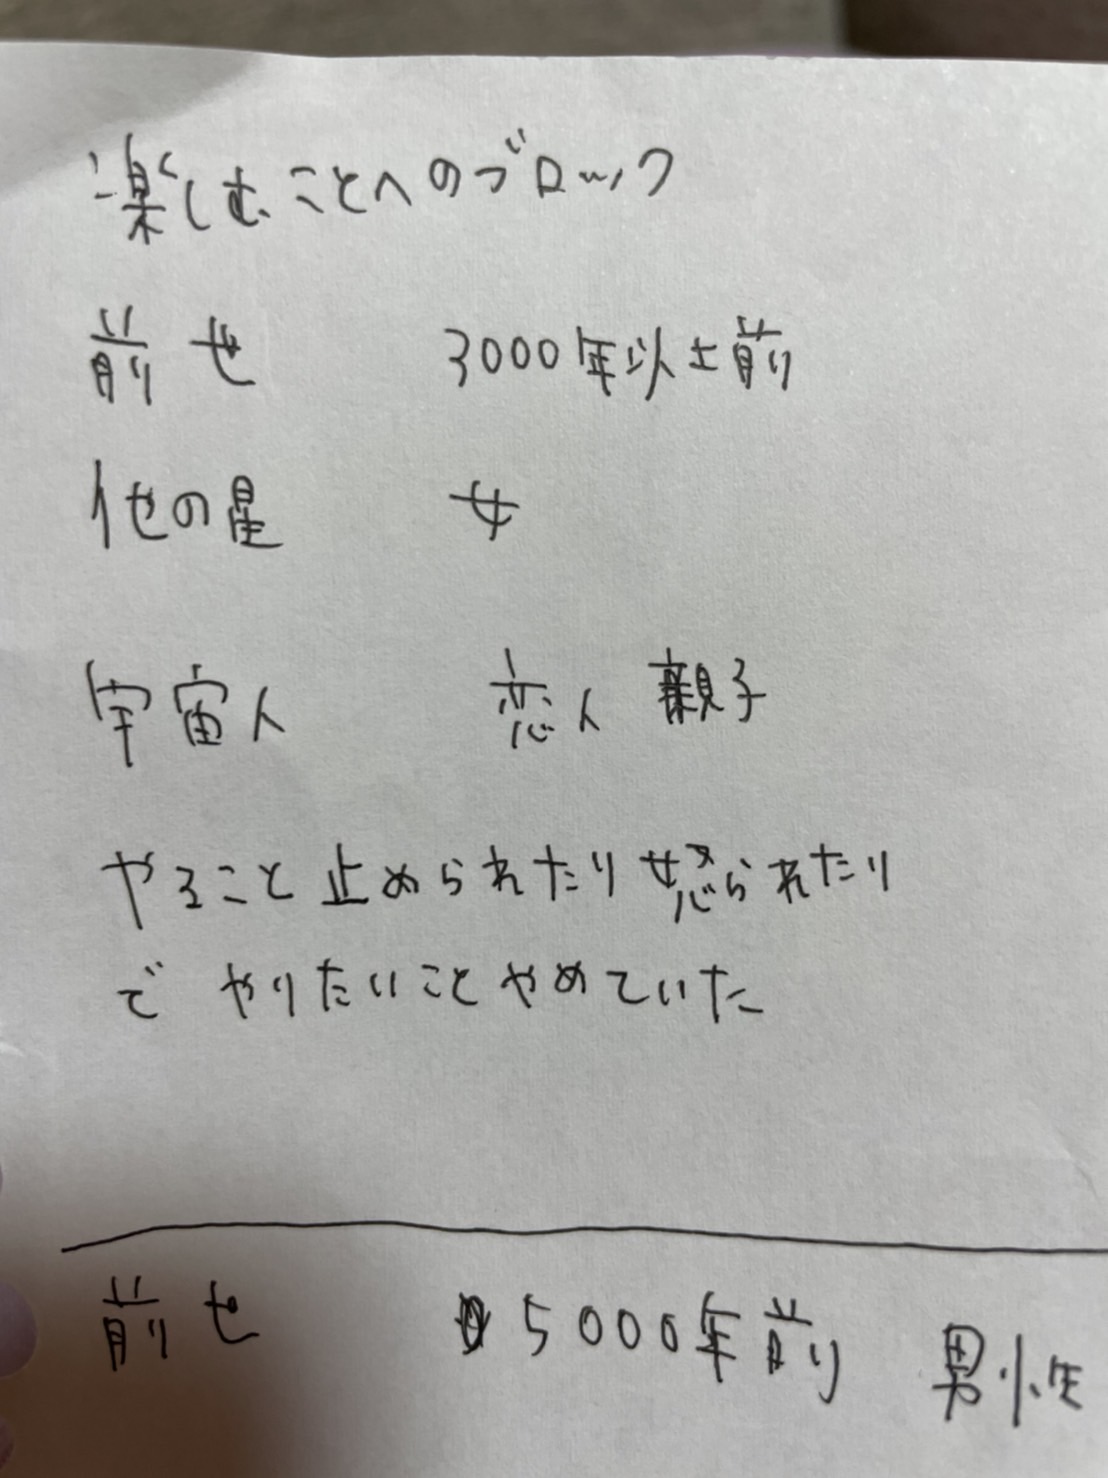 楽しむことへのブロック
前世 3000年以上前
他の星 女
宇宙人 恋人 親子
やること止められたり怒られたり
で やりたいことやめていた
前世 5000年前 男性